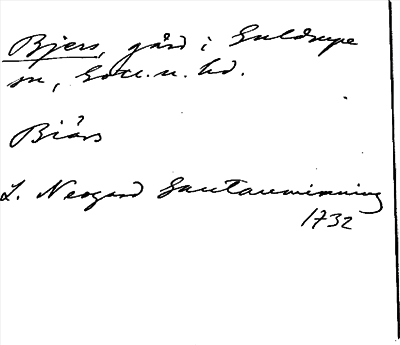 Bjers, gård i Guldrupe
sn, Gotl. n. hd.
Biärs
L. Neogard Gautauminning
1732